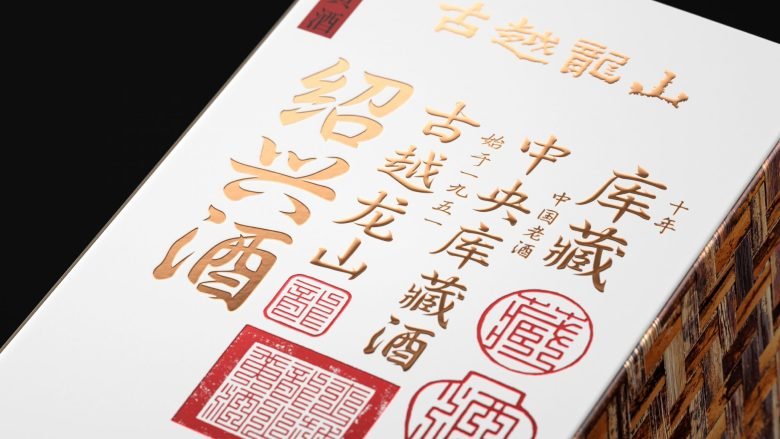 酒
古越龍山
十年
库藏
中国老酒
中央库藏酒
始于一九五一
古越龙山
绍兴酒
龍
藏